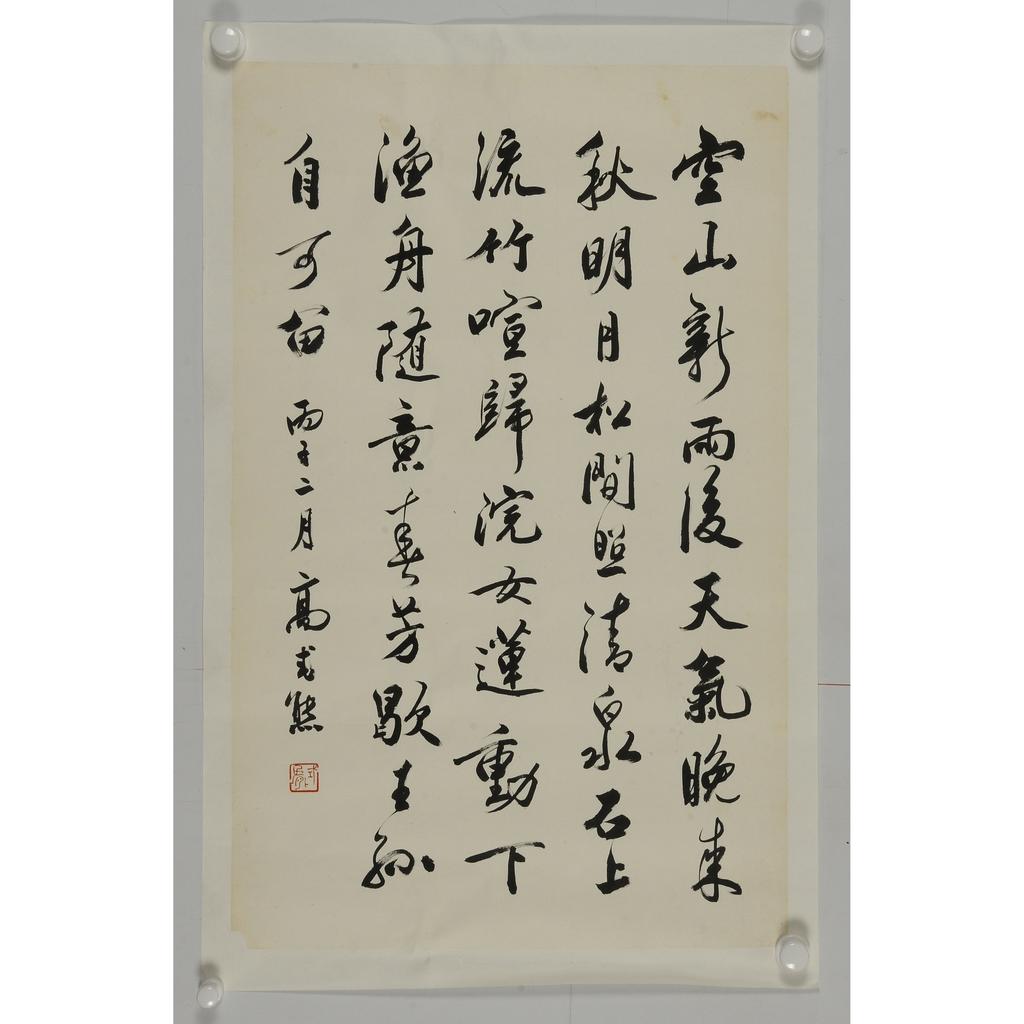 空山新雨後天氣晚来
秋明月松間照清泉石上
流竹喧歸浣女蓮動下
漁舟随意春芳歇王孫
自可留
丙子二月高式熊